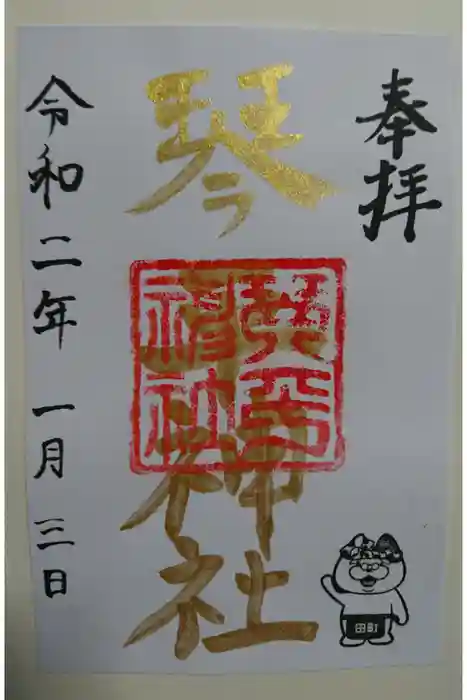 奉拝
琴平神社
神社
令和二年一月三日
田町